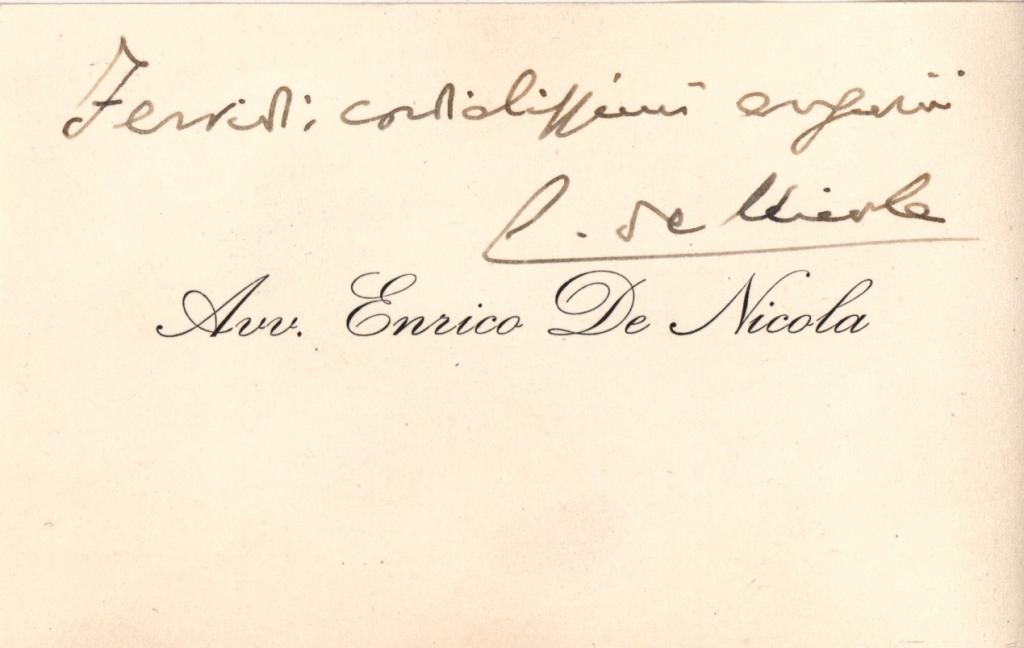 Fervidi, cordialissimi auguri
E. de Nicola
Avv. Enrico De Nicola